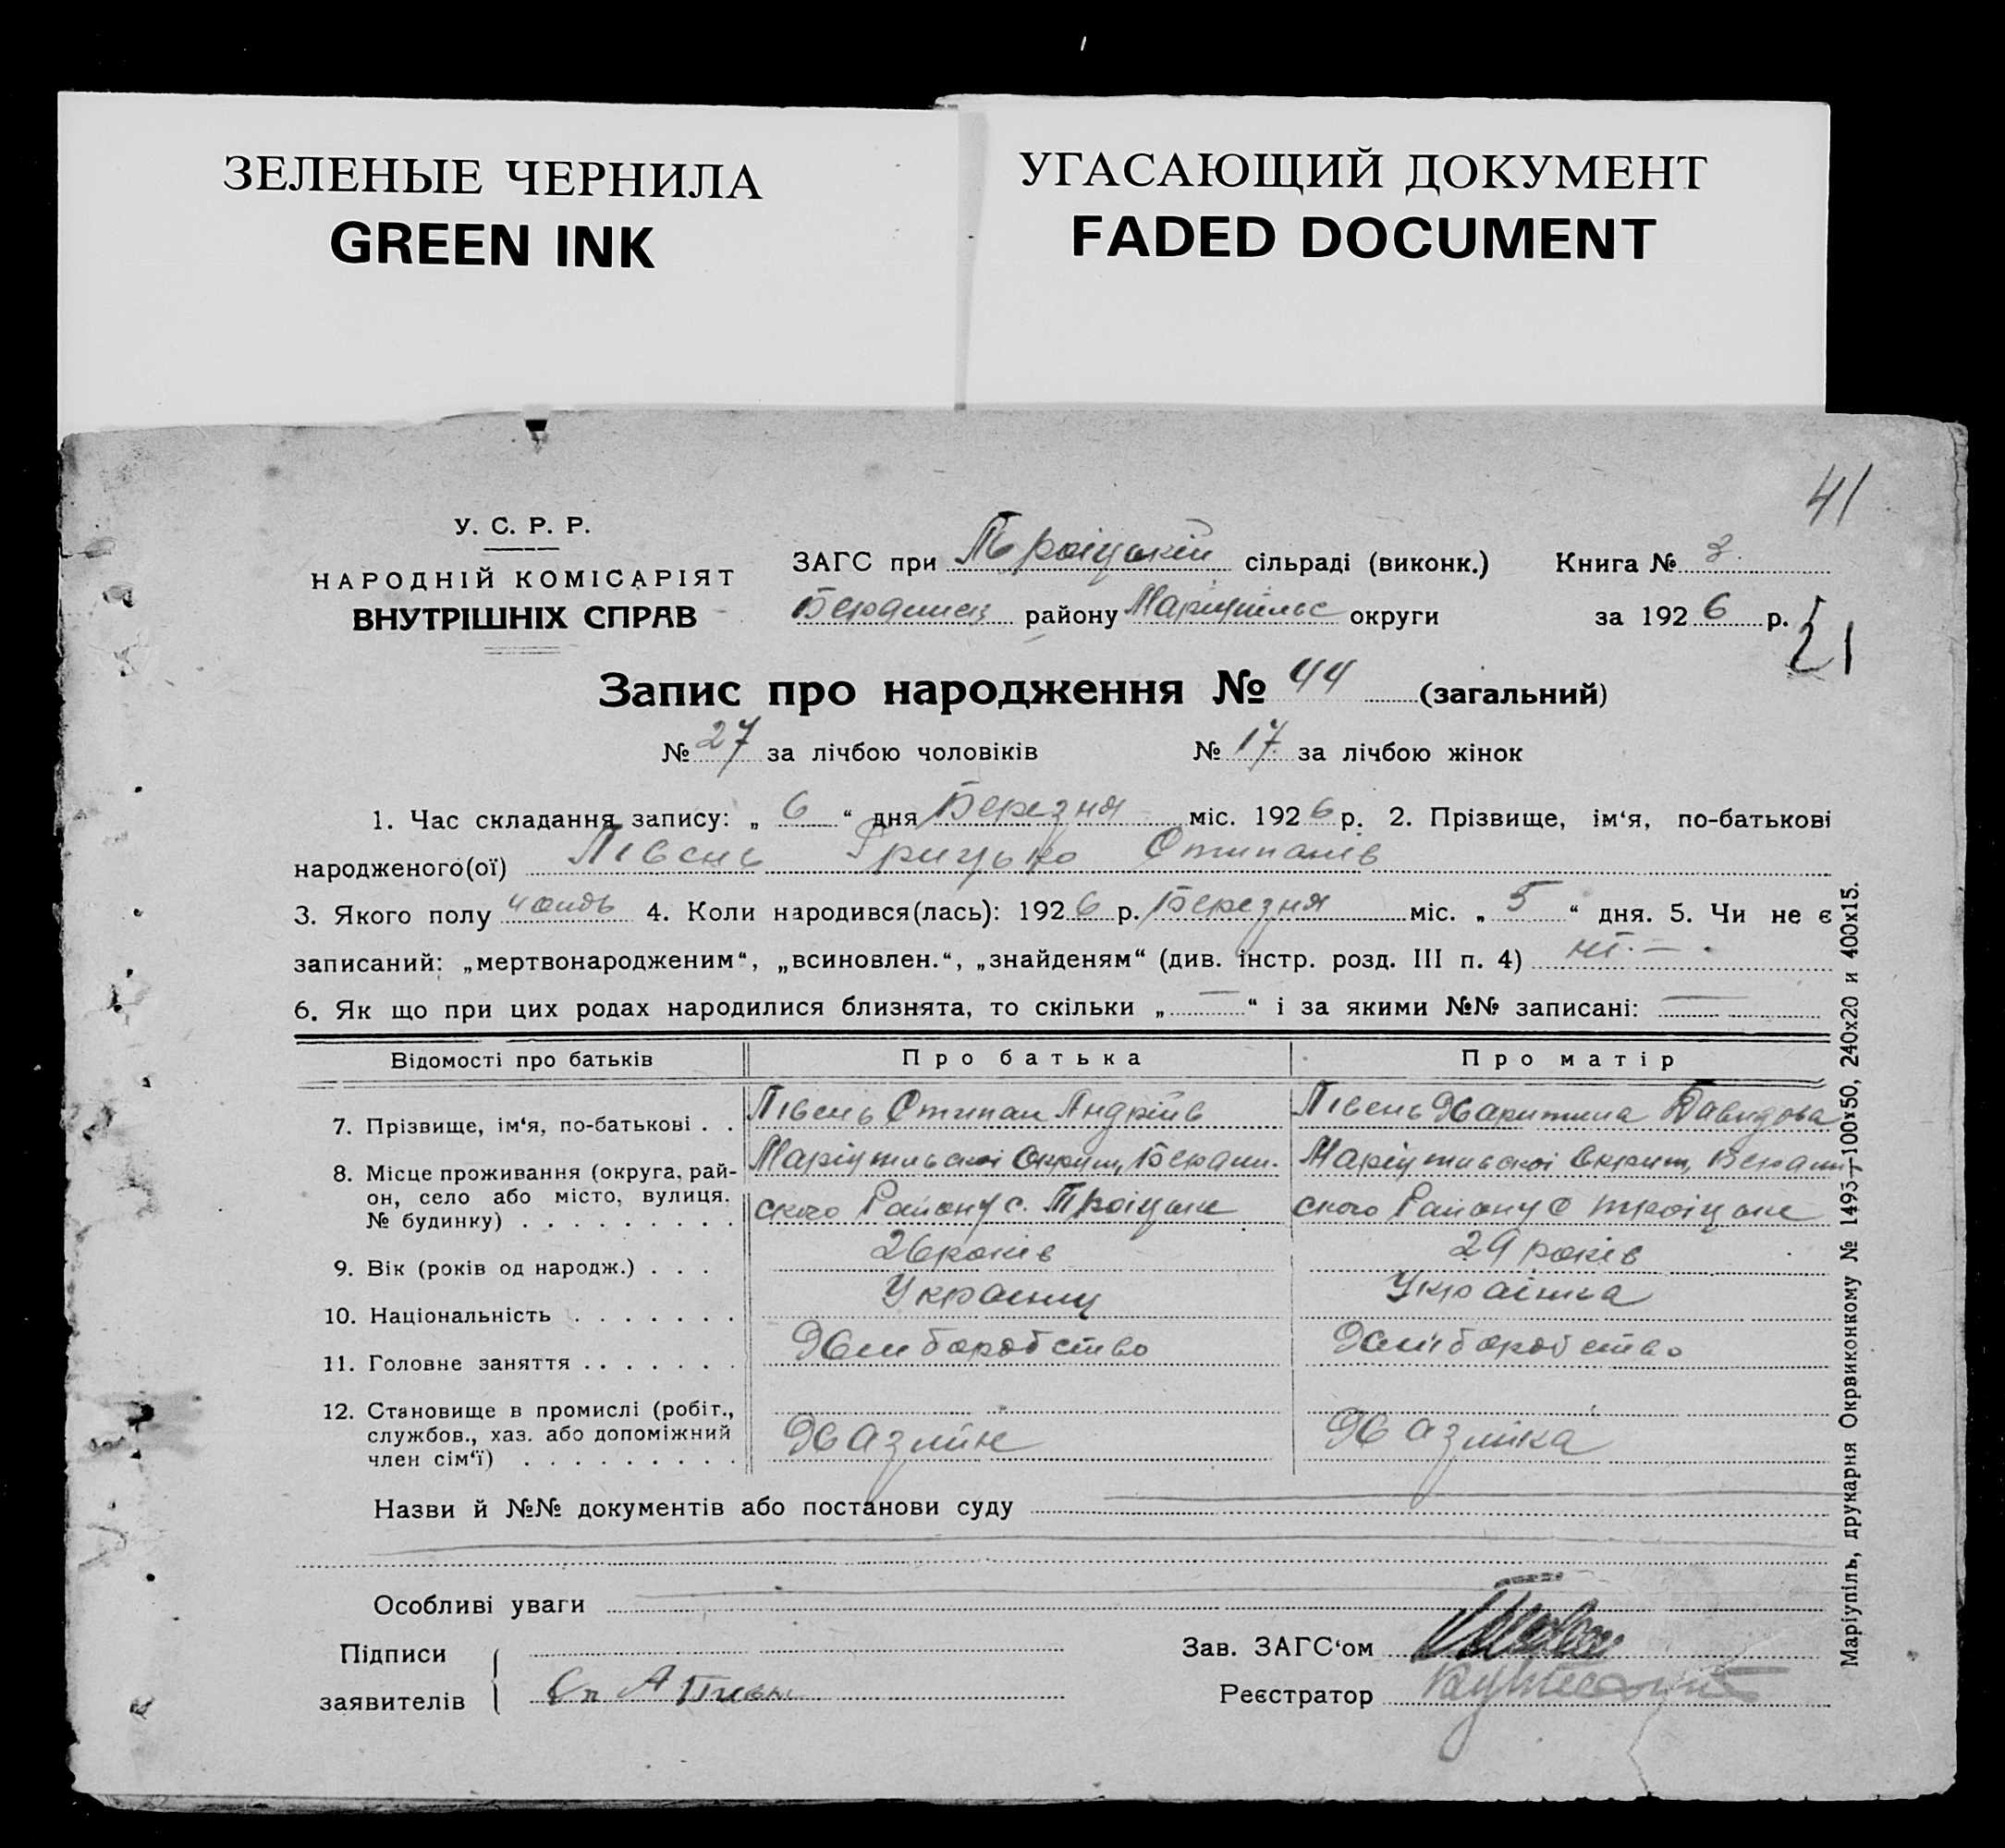 ЗЕЛЕНЫЕ ЧЕРНИЛА
GREEN INK
УГАСАЮЩИЙ ДОКУМЕНТ
FADED DOCUMENT
41
У. С. Р. Р.
НАРОДНІЙ КОМІСАРІЯТ
ВНУТРІШНІХ СПРАВ
ЗАГС при Троіцькій сільраді (виконк.) Книга № 3
району Маріупільс округи за 1926 р.
21
Запис про народження № 44 (загальний)
№ 27 за лічбою чоловіків № 17 за лічбою жінок
1. Час складання запису: „ 6 “ дня Березня міс. 1926 р. 2. Прізвище, ім‘я, по-батькові
народженого(ої) Півень Грицько Стипанів
3. Якого полу 4. Коли народився(лась): 1926 р. Березня міс. „ 5 “ дня. 5. Чи не є
записаний: „мертвонародженим“, „всиновлен.“, „знайденям“ (див. інстр. розд. III п. 4) ні. —
6. Як що при цих родах народилися близнята, то скільки „ — “ і за якими №№ записані: —
Відомості про батьків Про батька Про матір
7. Прізвище, ім‘я, по-батькові . . Півень Стипан Андріів Півень Харитина Давидова
8. Місце проживання (округа, рай-
он, село або місто, вулиця.
№ будинку) . . . . . . . . .
Маріупильскоі Округи, Маріупильскоі Округи,
ского Району с. Троіцьке ского Району с Троіцьке
9. Вік (років од народж.) . . . 26 років 29 років
10. Національність . . . . . . . Украінец Украінка
11. Головне заняття . . . . . . . Хлиборобство Хлиборобство
12. Становище в промислі (робіт.,
службов., хаз. або допоміжний
член сім‘ї) . . . . . . . . .
Хазяїн Хазяйка
Назви й №№ документів або постанови суду
Особливі уваги
Підписи
заявителів
Сп А Пивень
Зав. ЗАГС‘ом
Реєстратор
Маріупіль, друкарня Окрвиконкому № 1493—100х50, 240х20 и 400х15.